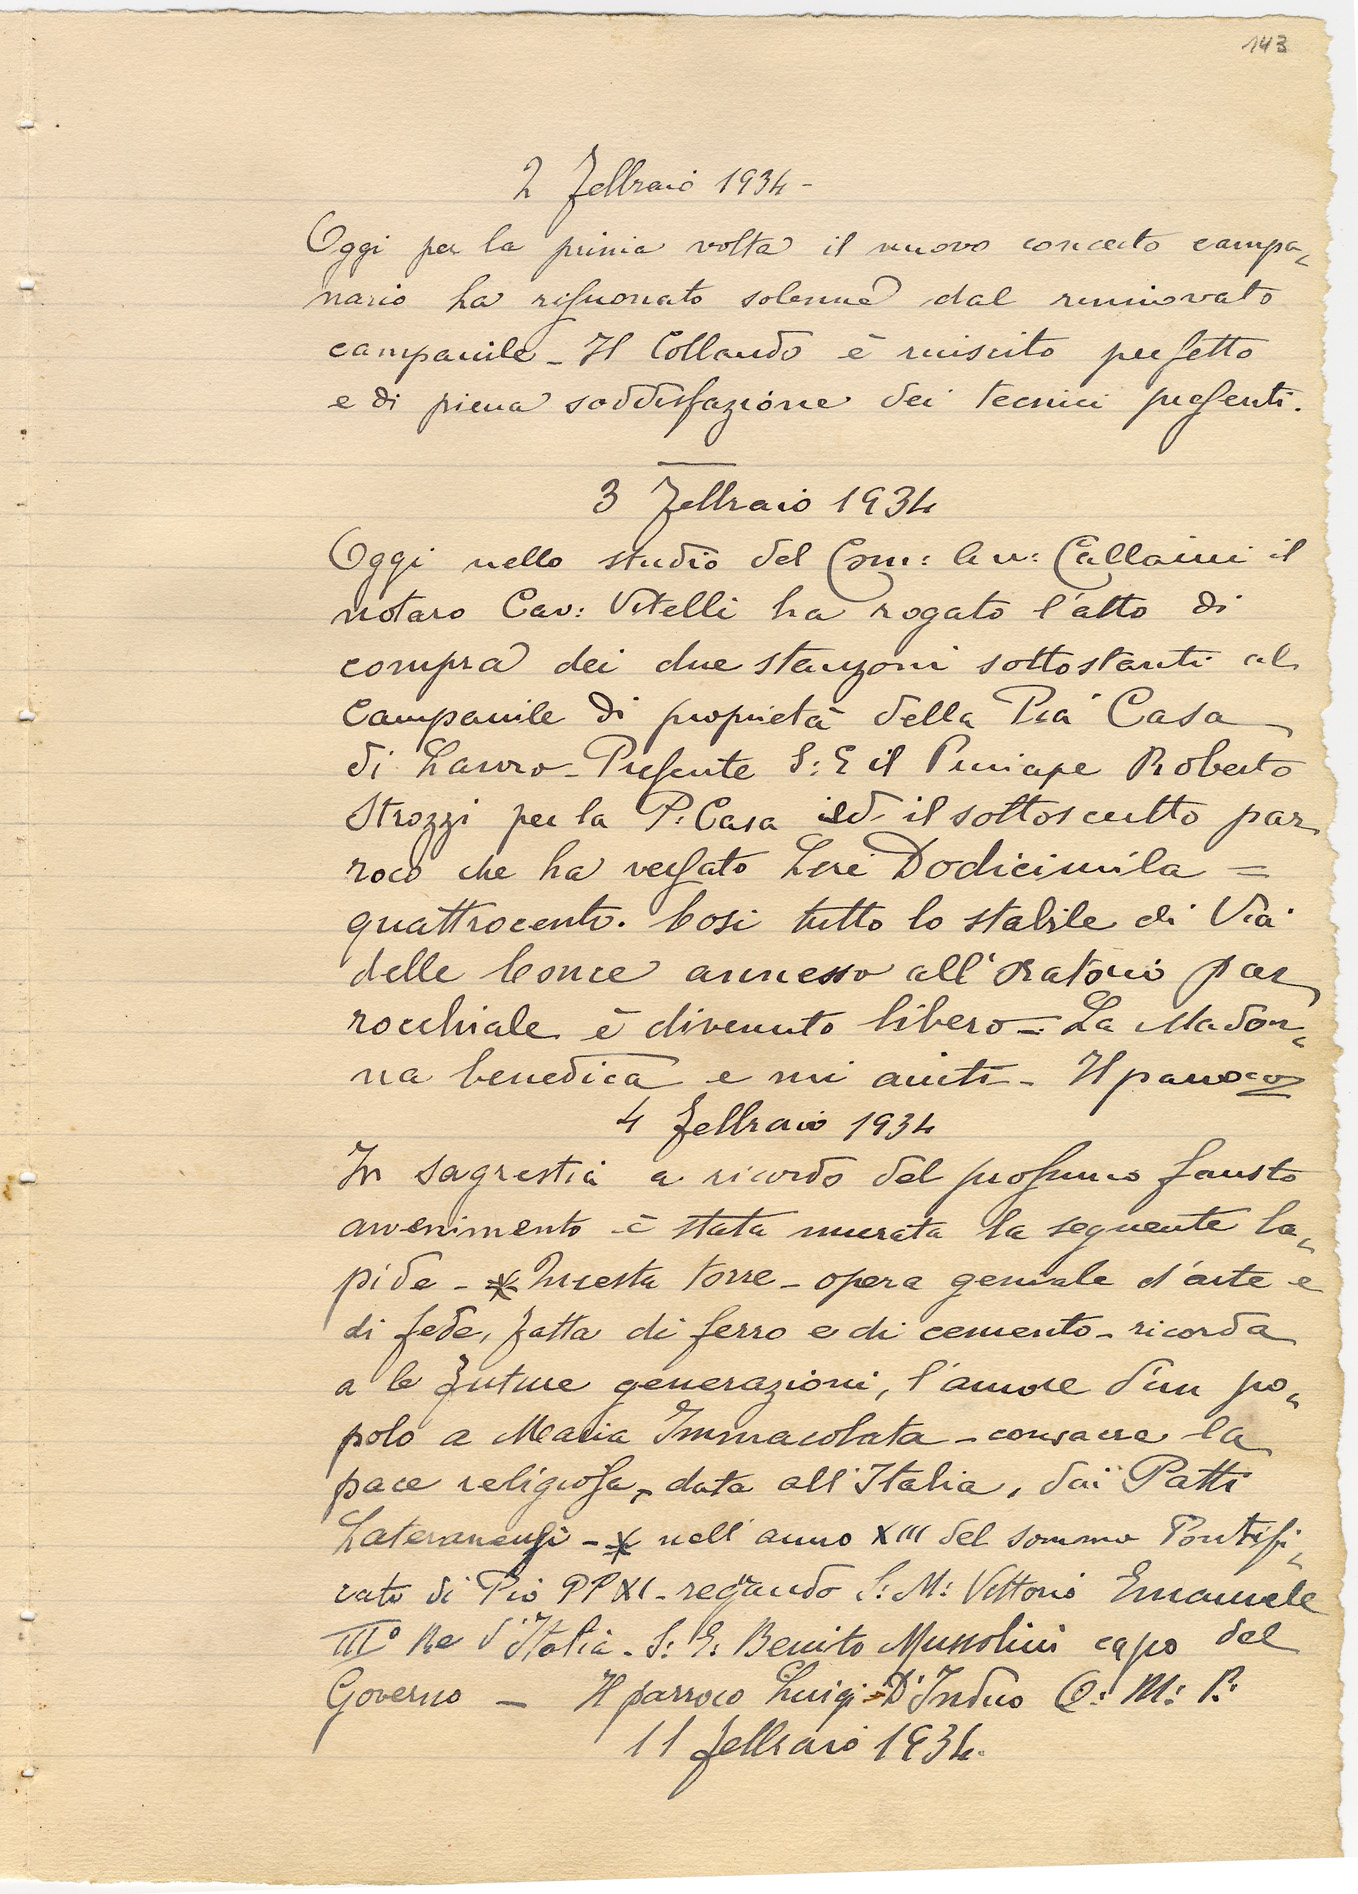 143
2 Febbraio 1934 -
Oggi per la prima volta il nuovo concerto campa-
nario ha risuonato solenne dal rinnovato
campanile - Il Collaudo è riuscito perfetto
e di piena soddisfazione dei tecnici presenti.
3 Febbraio 1934
Oggi nello studio del Com: Avv: Callaini il
notaro Cav: Vitelli ha rogato l'atto di
compra dei due stanzoni sottostanti al
Campanile di proprietà della Pia Casa
di Lavoro - Presente S: E il Principe Roberto
Strozzi per la P: Casa ed il sottoscritto par
roco che ha versato Lire Dodicimila =
quattrocento. Così tutto lo stabile di Via
delle Conce annesso all'Oratorio par
rocchiale è divenuto libero - La Madon-
na benedica e mi aiuti - Il parroco
4 febbraio 1934
In sagrestia a ricordo del prossimo fausto
avvenimento è stata murata la seguente la-
pide - * Questa torre - opera geniale d'arte e
di fede, fatta di ferro e di cemento - ricorda
a le future generazioni, l'amore d'un po-
polo a Maria Immacolata - consacra la
pace religiosa, data all'Italia, dai Patti
Lateranensi - * nell'anno XIII del sommo Pontifi-
cato di Pio PP XI - regnando S: M: Vittorio Emanuele
III° Re d'Italia - S: E: Benito Mussolini capo del
Governo - Il parroco Luigi D'Indico O: M: P:
11 febbraio 1934.